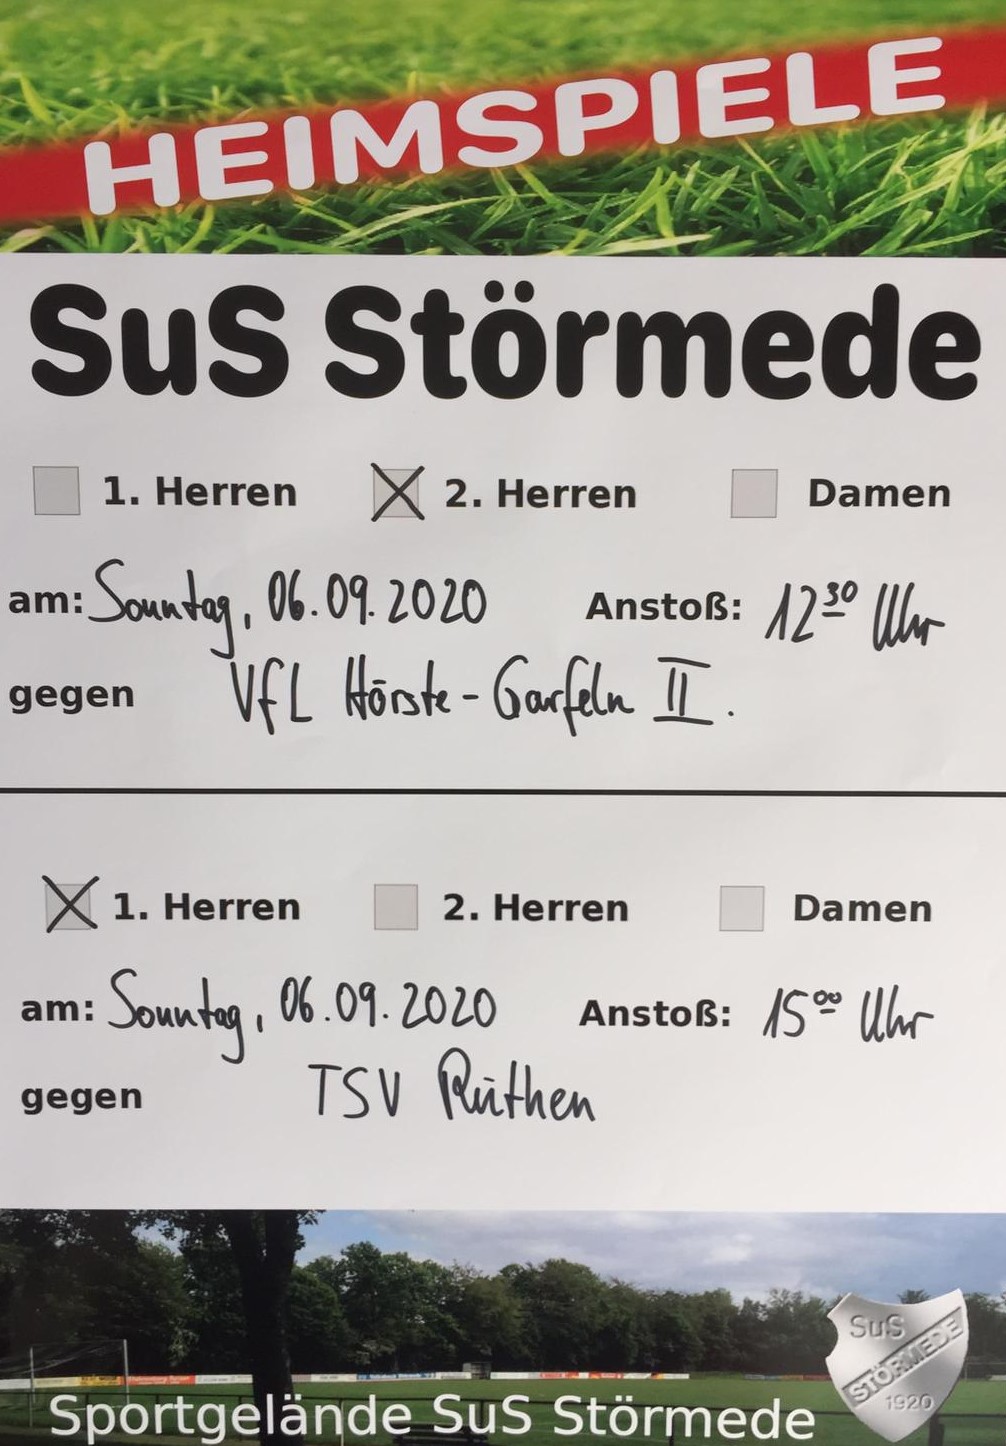 HEIMSPIELE
SuS Störmede
1. Herren 2. Herren Damen
am: Sonntag, 06.09.2020 Anstoß: 12³⁰ Uhr
gegen VfL Hörste-Garfeln II.
1. Herren 2. Herren Damen
am: Sonntag, 06.09.2020 Anstoß: 15⁰⁰ Uhr
gegen TSV Rüthen
SuS
STÖRMEDE
1920
Sportgelände SuS Störmede